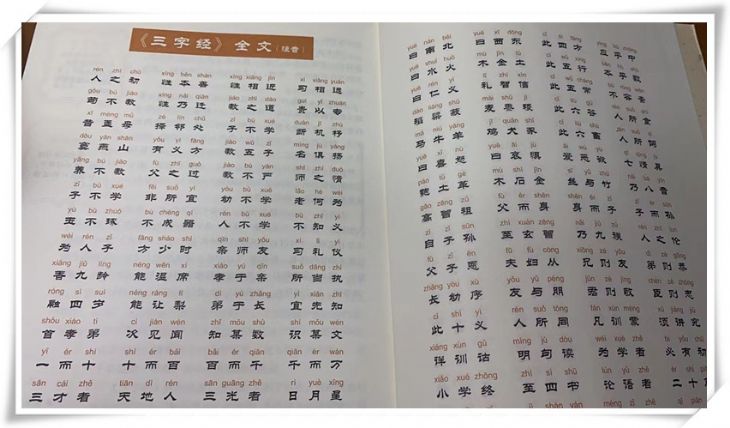 《三字经》全文(注音)
rén zhī chū xìng běn shàn xìng xiāng jìn xí xiāng yuǎn
人之初 性本善 性相近 习相远
gǒu bú jiào xìng nǎi qiān jiào zhī dào guì yǐ zhuān
苟不教 性乃迁 教之道 贵以专
xī mèng mǔ zé lín chǔ zǐ bù xué duàn jī zhù
昔孟母 择邻处 子不学 断机杼
dòu yān shān yǒu yì fāng jiào wǔ zǐ míng jù yáng
窦燕山 有义方 教五子 名俱扬
yǎng bú jiào fù zhī guò jiào bù yán shī zhī duò
养不教 父之过 教不严 师之惰
zǐ bù xué fēi suǒ yí yòu bù xué lǎo hé wéi
子不学 非所宜 幼不学 老何为
yù bù zhuó bù chéng qì rén bù xué bù zhī yì
玉不琢 不成器 人不学 不知义
wéi rén zǐ fāng shào shí qīn shī yǒu xí lǐ yí
为人子 方少时 亲师友 习礼仪
xiāng jiǔ líng néng wēn xí xiào yú qīn suǒ dāng zhí
香九龄 能温席 孝于亲 所当执
róng sì suì néng ràng lí dì yú zhǎng yí xiān zhī
融四岁 能让梨 弟于长 宜先知
shǒu xiào tì cì jiàn wén zhī mǒu shù shí mǒu wén
首孝弟 次见闻 知某数 识某文
yī ér shí shí ér bǎi bǎi ér qiān qiān ér wàn
一而十 十而百 百而千 千而万
sān cái zhě tiān dì rén sān guāng zhě rì yuè xīng
三才者 天地人 三光者 日月星
yuē nán běi yuē xī dōng cǐ sì fāng yìng hū zhōng
曰南北 曰西东 此四方 应乎中
yuē shuǐ huǒ mù jīn tǔ cǐ wǔ xíng běn hū shù
曰水火 木金土 此五行 本乎数
yuē rén yì lǐ zhì xìn cǐ wǔ cháng bù róng wěn
曰仁义 礼智信 此五常 不容紊
dào liáng shū mài shǔ jì cǐ liù gǔ rén suǒ shí
稻粱菽 麦黍稷 此六谷 人所食
mǎ niú yáng jī quǎn shǐ cǐ liù chù rén suǒ sì
马牛羊 鸡犬豕 此六畜 人所饲
yuē xǐ nù yuē āi jù ài wù yù qī qíng jù
曰喜怒 曰哀惧 爱恶欲 七情具
páo tǔ gé mù shí jīn sī yǔ zhú nǎi bā yīn
匏土革 木石金 丝与竹 乃八音
gāo zēng zǔ fù ér shēn shēn ér zǐ zǐ ér sūn
高曾祖 父而身 身而子 子而孙
zì zǐ sūn zhì xuán zēng nǎi jiǔ zú rén zhī lún
自子孙 至玄曾 乃九族 人之伦
fù zǐ ēn fū fù cóng xiōng zé yǒu dì zé gōng
父子恩 夫妇从 兄则友 弟则恭
zhǎng yòu xù yǒu yǔ péng jūn zé jìng chén zé zhōng
长幼序 友与朋 君则敬 臣则忠
cǐ shí yì rén suǒ tóng fán xùn méng xū jiǎng jiū
此十义 人所同 凡训蒙 须讲究
xiáng xùn gǔ míng jù dòu wéi xué zhě bì yǒu chū
详训诂 明句读 为学者 必有初
xiǎo xué zhōng zhì sì shū lún yǔ zhě èr shí
小学终 至四书 论语者 二十